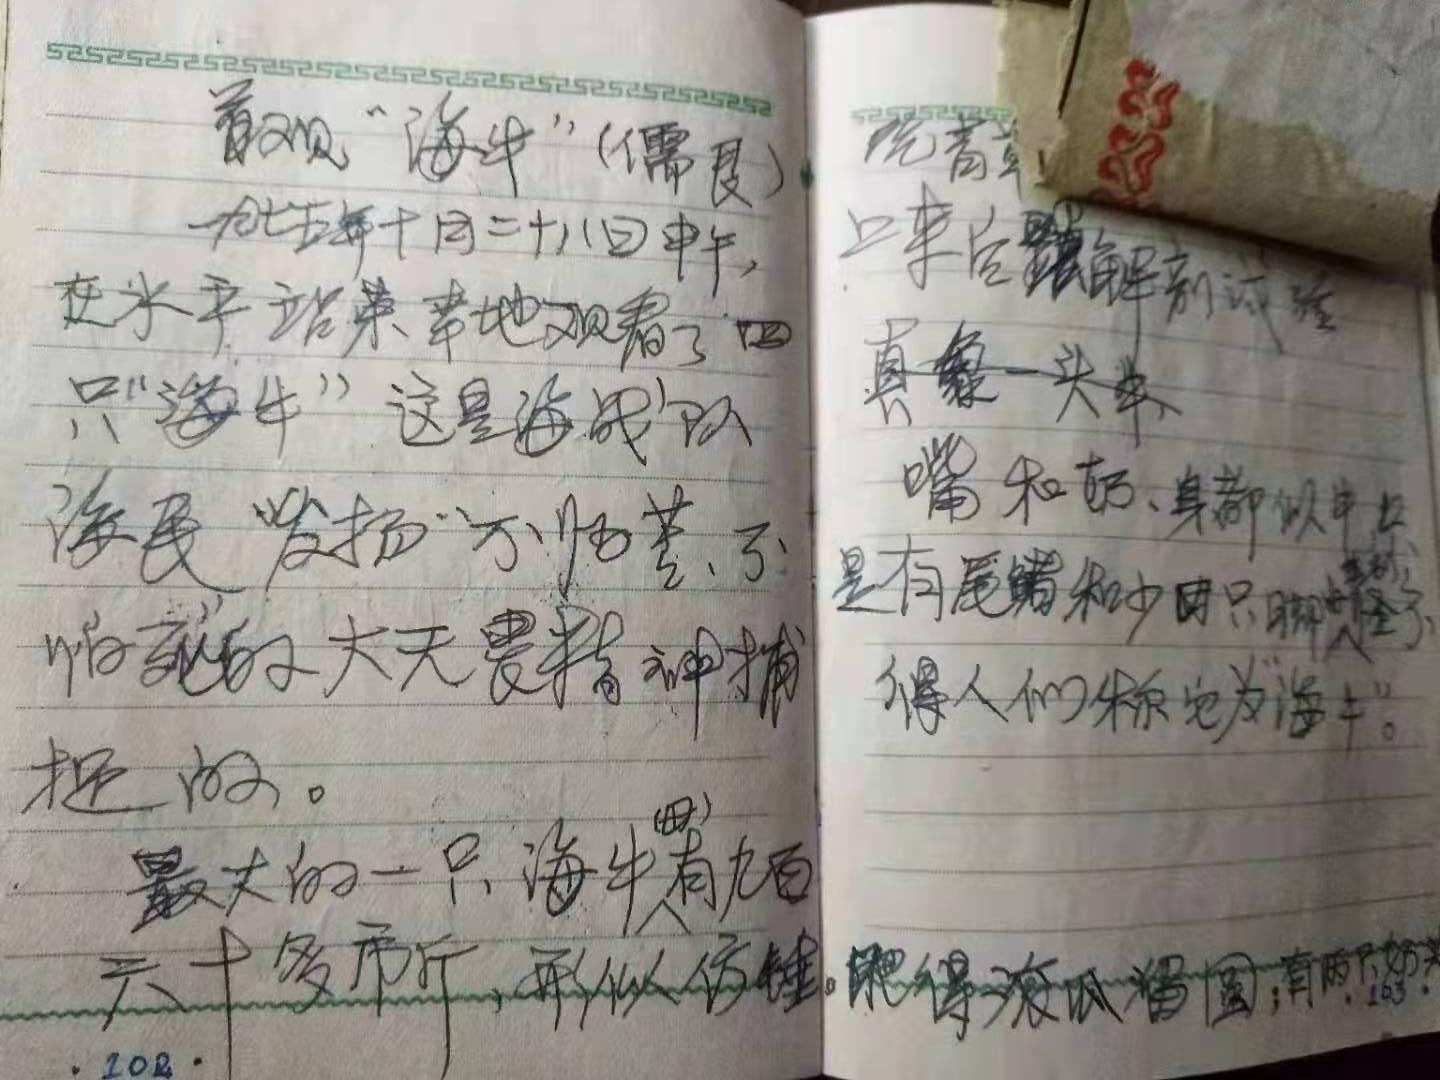 首观“海牛”（儒艮）
一九七五年十月二十八日中午，
在水平站菜草地观看了四
只“海牛”这是海战队
海民“发扬”不怕苦、不
怕死”的大无畏精神捕
捉的。
最大的一只海牛(母)有九百
六十多市斤，形似仿锤。
102
吃青草
口来后解剖试验
真象一头牛、
嘴和奶、身都似牛只
是有尾鳍和少四只脚
得人们称它为“海牛”。
肥得滚瓜溜圆；有两只奶头
103